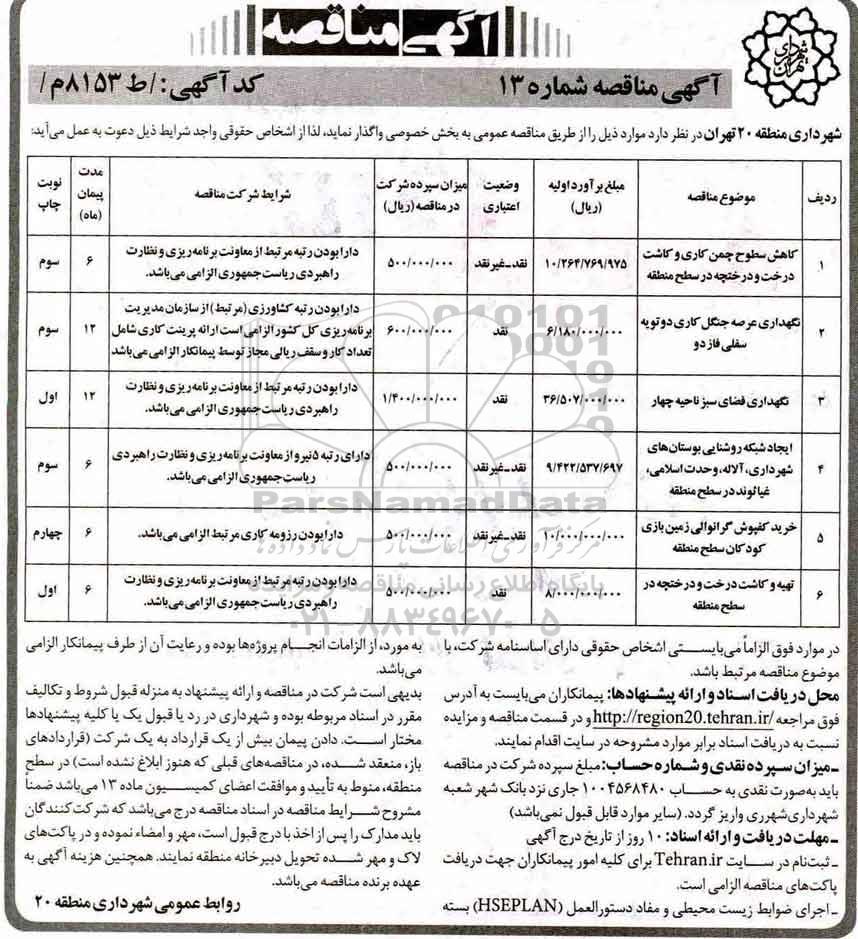 آگهی مناقصه
آگهی مناقصه شماره ۱۳
کد آگهی: /ط ۸۱۵۳م/
شهرداری منطقه ۲۰ تهران در نظر دارد موارد ذیل را از طریق مناقصه عمومی به بخش خصوصی واگذار نماید، لذا از اشخاص حقوقی واجد شرایط ذیل دعوت به عمل می‌آید:
ردیف
موضوع مناقصه
مبلغ برآورد اولیه
(ریال)
وضعیت
اعتباری
میزان سپرده شرکت
در مناقصه (ریال)
شرایط شرکت مناقصه
مدت
پیمان
(ماه)
نوبت
چاپ
۱
کاهش سطوح چمن کاری و کاشت
درخت و درختچه در سطح منطقه
۱۰/۲۶۴/۷۶۹/۹۷۵
نقد-غیرنقد
۵۰۰/۰۰۰/۰۰۰
دارا بودن رتبه مرتبط از معاونت برنامه‌ریزی و نظارت
راهبردی ریاست جمهوری الزامی می‌باشد.
۶
سوم
۲
نگهداری عرصه جنگل کاری دوتویه
سفلی فاز دو
۶/۱۸۰/۰۰۰/۰۰۰
نقد
۶۰۰/۰۰۰/۰۰۰
دارا بودن رتبه کشاورزی (مرتبط) از سازمان مدیریت
برنامه‌ریزی کل کشور الزامی است ارائه پرینت کاری شامل
تعداد کار و سقف ریالی مجاز توسط پیمانکار الزامی می‌باشد
۱۲
سوم
۳
نگهداری فضای سبز ناحیه چهار
۳۶/۵۰۷/۰۰۰/۰۰۰
نقد
۱/۴۰۰/۰۰۰/۰۰۰
دارا بودن رتبه مرتبط از معاونت برنامه‌ریزی و نظارت
راهبردی ریاست جمهوری الزامی می‌باشد.
۱۲
اول
۴
ایجاد شبکه روشنایی بوستان‌های
شهرداری، آلاله، وحدت اسلامی،
غیاثوند در سطح منطقه
۹/۴۲۲/۵۳۷/۶۹۷
نقد-غیرنقد
۵۰۰/۰۰۰/۰۰۰
دارای رتبه ۵ نیرو از معاونت برنامه‌ریزی و نظارت راهبردی
ریاست جمهوری الزامی می‌باشد.
۶
سوم
۵
خرید کفپوش گرانولی زمین بازی
کودکان سطح منطقه
۱۰/۰۰۰/۰۰۰/۰۰۰
نقد-غیرنقد
۵۰۰/۰۰۰/۰۰۰
دارا بودن رزومه کاری مرتبط الزامی می‌باشد.
۶
چهارم
۶
تهیه و کاشت درخت و درختچه در
سطح منطقه
۸/۰۰۰/۰۰۰/۰۰۰
نقد
۵۰۰/۰۰۰/۰۰۰
دارا بودن رتبه مرتبط از معاونت برنامه‌ریزی و نظارت
راهبردی ریاست جمهوری الزامی می‌باشد.
۶
اول
ParsNamadData
مرکز فرآوری اطلاعات پارس نماد داده ها
پایگاه اطلاع رسانی مناقصه و مزایده
۰۲۱-۸۸۳۴۹۶۷۰-۵
در موارد فوق الزاماً می‌بایستی اشخاص حقوقی دارای اساسنامه شرکت، با
موضوع مناقصه مرتبط باشد.
محل دریافت اسناد و ارائه پیشنهادها: پیمانکاران می‌بایست به آدرس
فوق مراجعه http://region20.tehran.ir/ و در قسمت مناقصه و مزایده
نسبت به دریافت اسناد برابر موارد مشروحه در سایت اقدام نمایند.
- میزان سپرده نقدی و شماره حساب: مبلغ سپرده شرکت در مناقصه
باید به‌صورت نقدی به حساب ۱۰۰۴۵۶۸۴۸۰ جاری نزد بانک شهر شعبه
شهرداری شهرری واریز گردد. (سایر موارد قابل قبول نمی‌باشد)
- مهلت دریافت و ارائه اسناد: ۱۰ روز از تاریخ درج آگهی
- ثبت‌نام در سایت Tehran.ir برای کلیه امور پیمانکاران جهت دریافت
پاکت‌های مناقصه الزامی است.
- اجرای ضوابط زیست محیطی و مفاد دستورالعمل (HSEPLAN) بسته
به مورد، از الزامات انجام پروژه‌ها بوده و رعایت آن از طرف پیمانکار الزامی
می‌باشد.
بدیهی است شرکت در مناقصه و ارائه پیشنهاد به منزله قبول شروط و تکالیف
مقرر در اسناد مربوطه بوده و شهرداری در رد یا قبول یک یا کلیه پیشنهادها
مختار است. دادن پیمان بیش از یک قرارداد به یک شرکت (قراردادهای
باز، منعقد شده، در مناقصه‌های قبلی که هنوز ابلاغ نشده است) در سطح
منطقه، منوط به تأیید و موافقت اعضای کمیسیون ماده ۱۳ می‌باشد ضمناً
مشروح شرایط مناقصه در اسناد مناقصه درج می‌باشد که شرکت‌کنندگان
باید مدارک را پس از اخذ با درج قبول است، مهر و امضاء نموده و در پاکت‌های
لاک و مهر شده تحویل دبیرخانه منطقه نمایند. همچنین هزینه آگهی به
عهده برنده مناقصه می‌باشد.
روابط عمومی شهرداری منطقه ۲۰